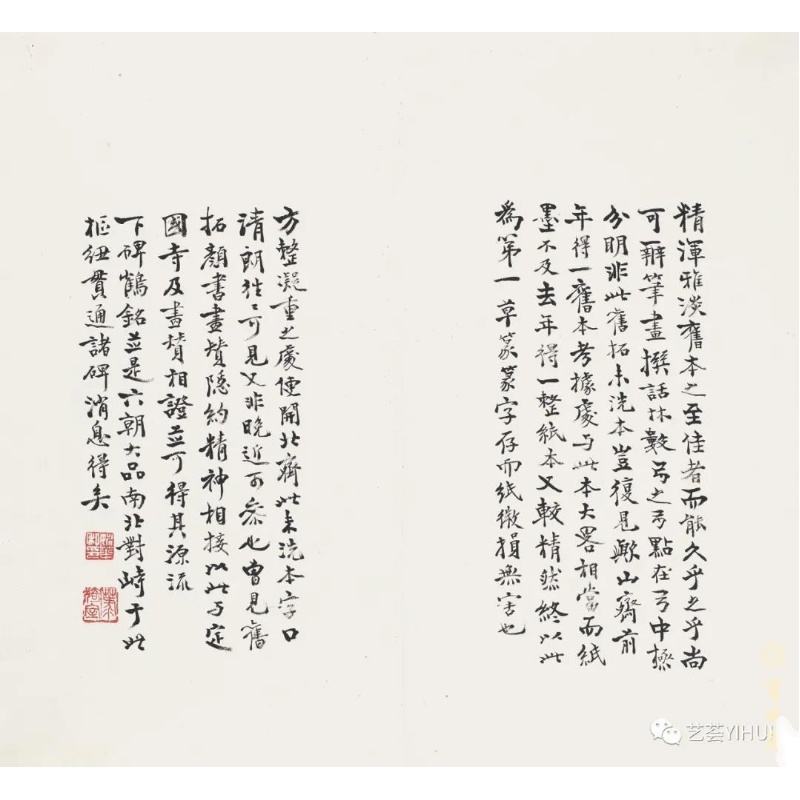 精渾雅淡舊本之至佳者而能久乎之乎尚
可辨筆畫撰話林數弓之弓點在弓中極
分明非此舊拓未洗本豈復見歐山齋前
年得一舊本考據處与此本大畧相當而紙
墨不及去年得一整紙本又較精然終以此
為第一草篆篆字存而紙微損無害也
方整凝重之處便開北齊此未洗本字口
清朗往往可見又非晚近可參也曾見舊
拓顏書畫贊隱約精神相接以此与定
國寺及畫贊相證並可得其源流
下碑鶴銘並是六朝大品南北對峙于此
樞紐貫通諸碑消息得矣
艺荟YIHUI